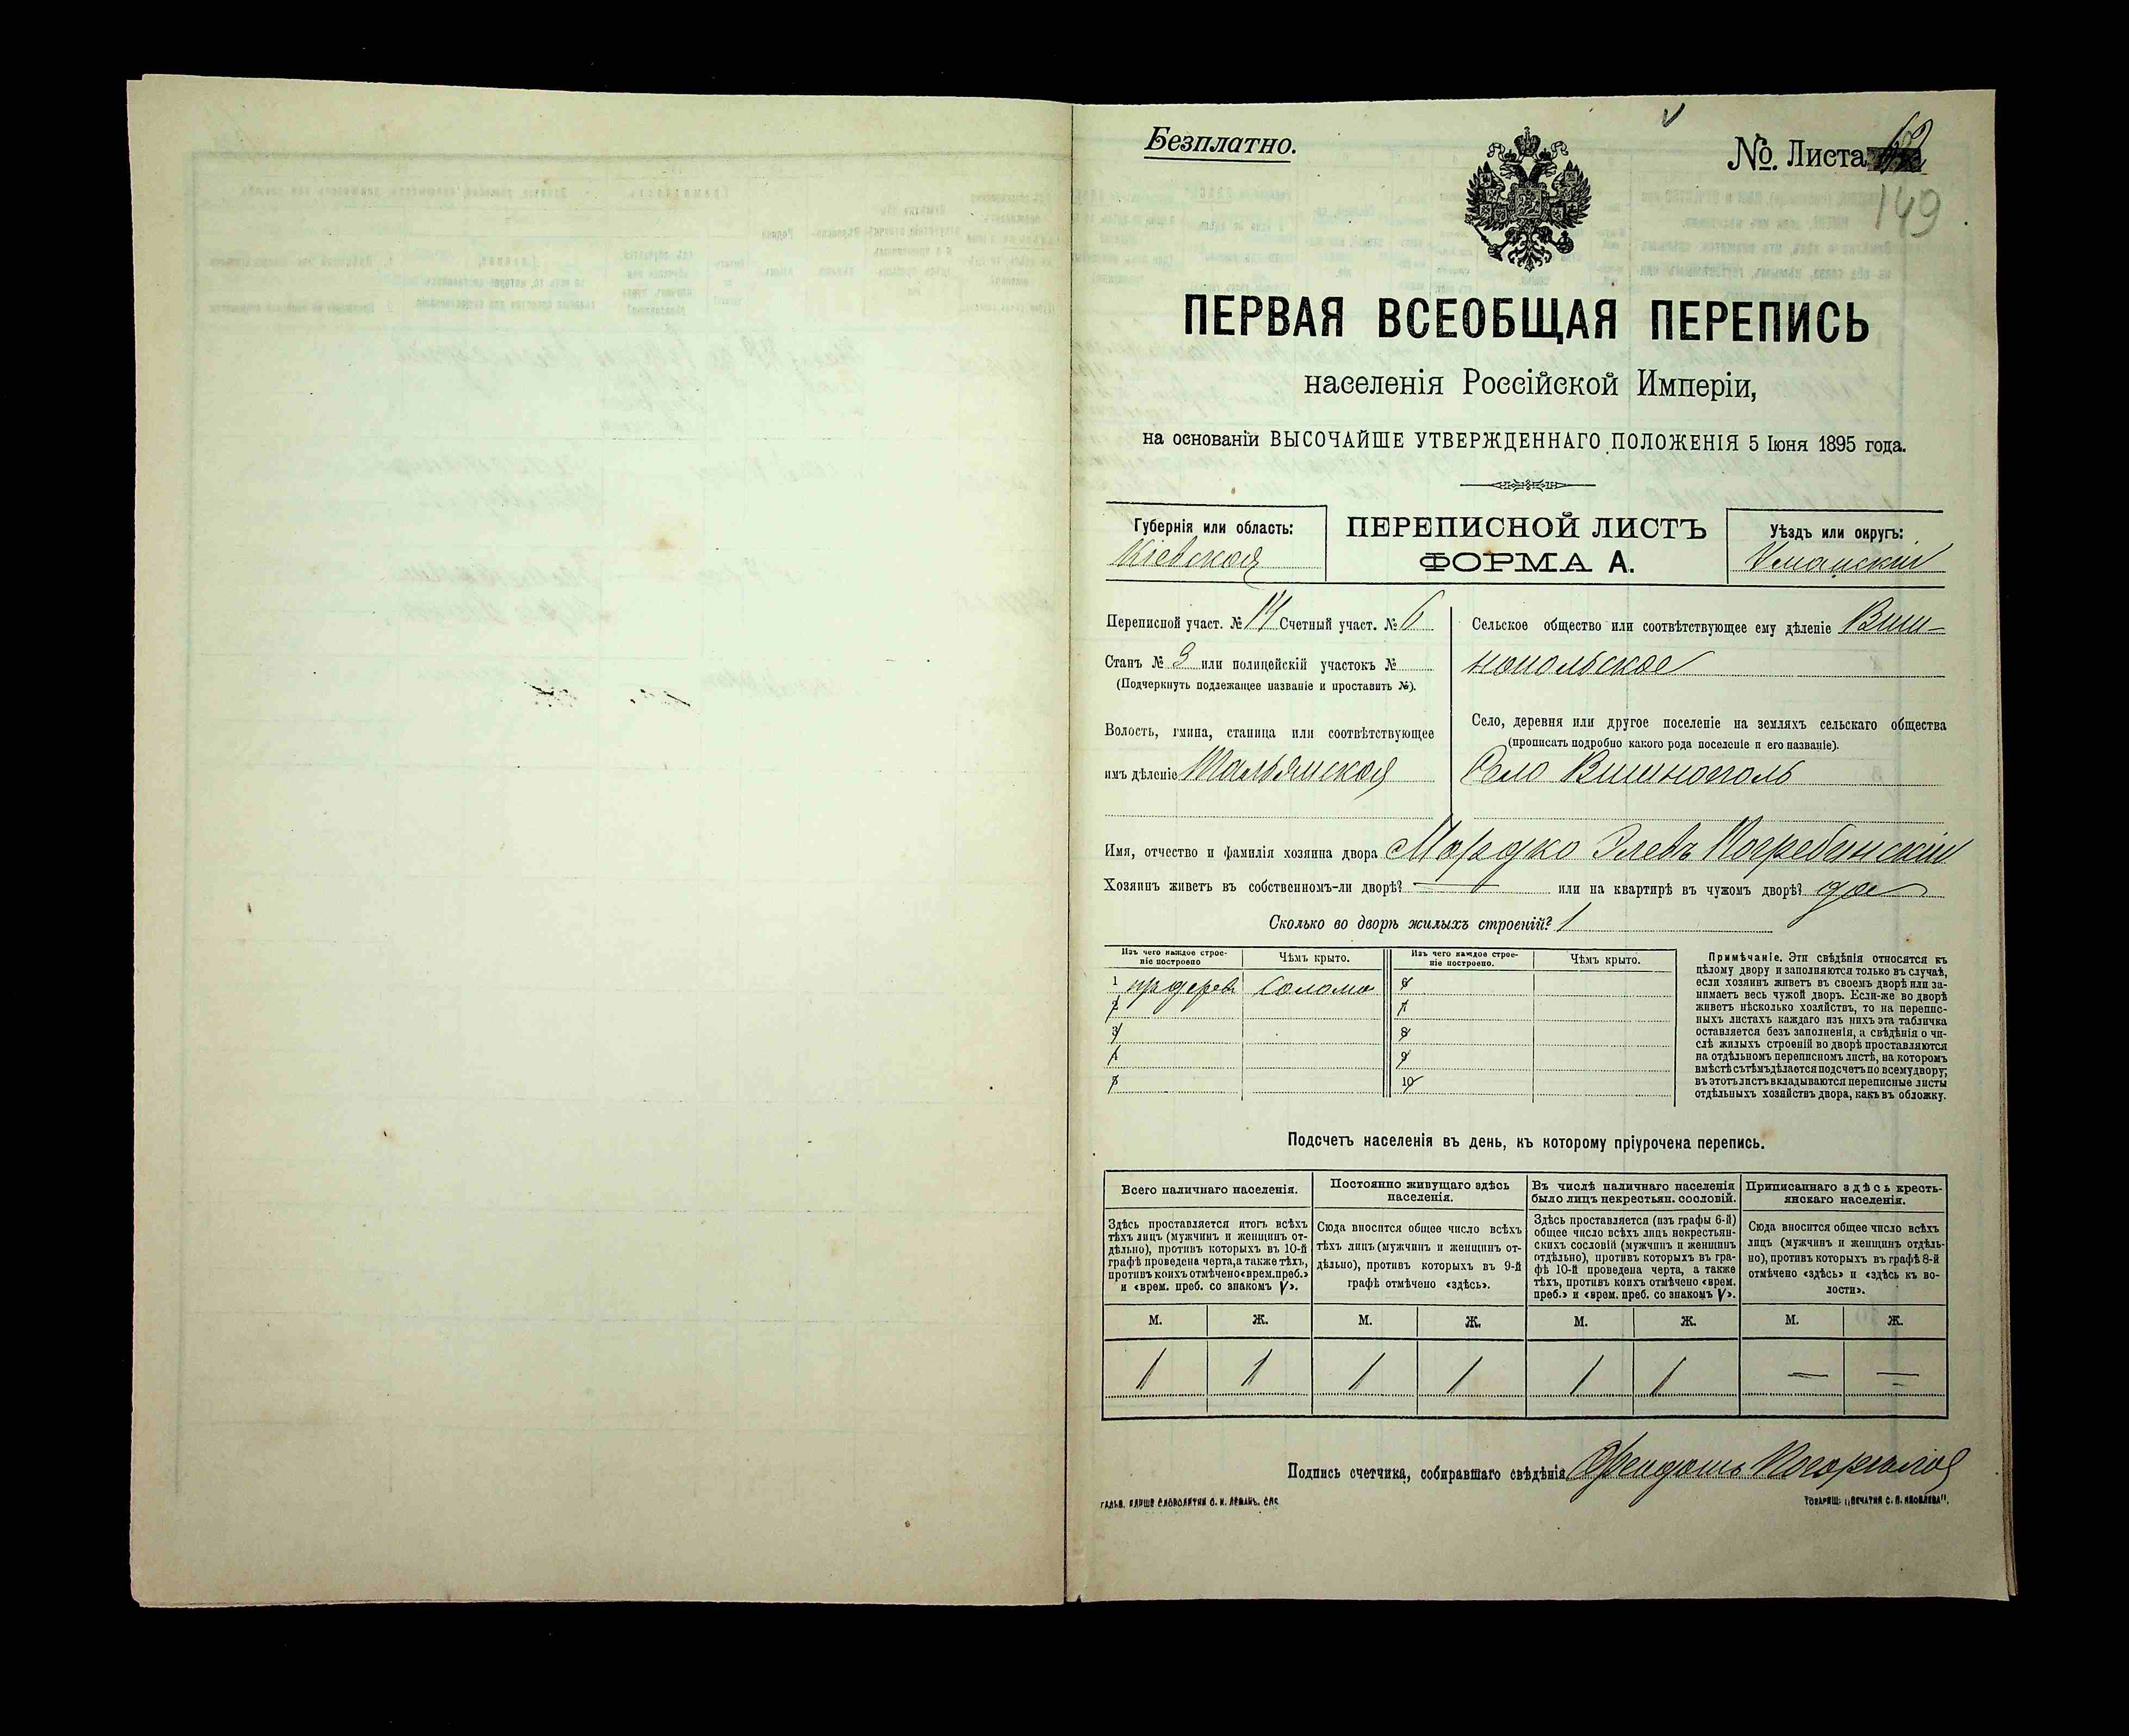 Безплатно.
№. Листа
149
ПЕРВАЯ ВСЕОБЩАЯ ПЕРЕПИСЬ
населенія Россійской Имперіи,
на основаніи ВЫСОЧАЙШЕ УТВЕРЖДЕННАГО ПОЛОЖЕНІЯ 5 Іюня 1895 года.
Губернія или область:
Кіевская
ПЕРЕПИСНОЙ ЛИСТЪ
ФОРМА А.
Уѣздъ или округъ:
Уманскій
Переписной участ. № 14 Счетный участ. № 6
Станъ № 3 или полицейскій участокъ №
(Подчеркнуть подлежащее названіе и проставить №).
Волость, гмина, станица или соотвѣтствующее
имъ дѣленіе Тальянская
Сельское общество или соотвѣтствующее ему дѣленіе Виш-
нопольское
Село, деревня или другое поселеніе на земляхъ сельскаго общества
(прописать подробно какого рода поселеніе и его названіе).
Село Вишнополь
Имя, отчество и фамилія хозяина двора Мордко Погребинскій
Хозяинъ живетъ въ собственномъ-ли дворѣ? — или на квартирѣ въ чужомъ дворѣ? да
Сколько во дворѣ жилыхъ строеній? 1
Изъ чего каждое строе-
ніе построено
Чѣмъ крыто.
Изъ чего каждое строе-
ніе построено.
Чѣмъ крыто.
1 дерев. солома
2
3
4
5
6
7
8
9
10
Примѣчаніе. Эти свѣдѣнія относятся къ
цѣлому двору и заполняются только въ случаѣ,
если хозяинъ живетъ въ своемъ дворѣ или за-
нимаетъ весь чужой дворъ. Если-же во дворѣ
живетъ нѣсколько хозяйствъ, то на перепис-
ныхъ листахъ каждаго изъ нихъ эта табличка
оставляется безъ заполненія, а свѣдѣнія о чи-
слѣ жилыхъ строеній во дворѣ проставляются
на отдѣльномъ переписномъ листѣ, на которомъ
вмѣстѣ съ тѣмъ дѣлается подсчетъ по всему двору;
въ этотъ листъ вкладываются переписные листы
отдѣльныхъ хозяйствъ двора, какъ въ обложку.
Подсчетъ населенія въ день, къ которому пріурочена перепись.
Всего наличнаго населенія.
Здѣсь проставляется итогъ всѣхъ
тѣхъ лицъ (мужчинъ и женщинъ от-
дѣльно), противъ которыхъ въ 10-й
графѣ проведена черта, а также тѣхъ,
противъ коихъ отмѣчено «врем. преб.»
и «врем. преб. со знакомъ V».
Постоянно живущаго здѣсь
населенія.
Сюда вносится общее число всѣхъ
тѣхъ лицъ (мужчинъ и женщинъ от-
дѣльно), противъ которыхъ въ 9-й
графѣ отмѣчено «здѣсь».
Въ числѣ наличнаго населенія
было лицъ некрестьян. сословій.
Здѣсь проставляется (изъ графы 6-й)
общее число всѣхъ лицъ некрестьян-
скихъ сословій (мужчинъ и женщинъ
отдѣльно), противъ которыхъ въ гра-
фѣ 10-й проведена черта, а также
тѣхъ, противъ коихъ отмѣчено «врем.
преб.» и «врем. преб. со знакомъ V».
Приписаннаго здѣсь кресть-
янскаго населенія.
Сюда вносится общее число всѣхъ
лицъ (мужчинъ и женщинъ отдѣль-
но), противъ которыхъ въ графѣ 8-й
отмѣчено «здѣсь» и «здѣсь къ во-
лости».
М. Ж. М. Ж. М. Ж. М. Ж.
1 1 1 1 1 1 — —
Подпись счетчика, собиравшаго свѣдѣнія
ГАЛЬВ. КЛИШЕ СЛОВОЛИТНИ О. И. ЛЕМАНЪ. СПБ.
ТОВАРИЩ. „ПЕЧАТНЯ С. П. ЯКОВЛЕВА".